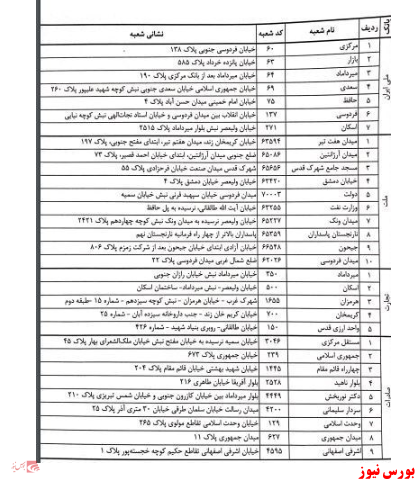 بانک ردیف نام شعبه کد شعبه نشانی شعبه
ملی ایران
۱ مرکزی ۶۰ خیابان فردوسی جنوبی پلاک ۱۳۸
۲ بازار ۶۳ خیابان پانزده خرداد پلاک ۵۸۵
۳ میرداماد ۶۴ خیابان میرداماد بعد از بانک مرکزی پلاک ۱۹۰
۴ سعدی ۶۹ خیابان جمهوری اسلامی خیابان سعدی جنوبی نبش کوچه شهید علیپور پلاک ۲۶۰
۵ حافظ ۷۵ خیابان امام خمینی میدان حسن آباد پلاک ۴
۶ فردوسی ۱۳۷ خیابان انقلاب بین میدان فردوسی و خیابان استاد نجات‌الهی نبش کوچه نیایی
۷ اسکان ۲۷۱ خیابان ولیعصر نبش بلوار میرداماد پلاک ۲۵۱۵
ملت
۱ میدان هفت تیر ۶۳۵۹۴ خیابان کریمخان زند، میدان هفتم تیر، ابتدای مفتح جنوبی، پلاک ۱۹۷
۲ میدان آرژانتین ۶۵۰۸۶ ضلع جنوبی میدان آرژانتین، ابتدای خیابان احمد قصیر، پلاک ۷۳
۳ مسجد جامع شهرک قدس ۶۵۶۵۶ شهرک قدس میدان صنعت خیابان فرحزادی پلاک ۵۵
۴ خیابان دمشق ۶۳۴۲۰ خیابان ولیعصر خیابان دمشق پلاک ۴
۵ دولت ۷۰۰۰۳ میدان فردوسی خیابان سپهبد قرنی نبش خیابان سمیه
۶ وزارت نفت ۶۳۲۵۵ خیابان آیت الله طالقانی، نرسیده به پل حافظ
۷ میدان ونک ۶۵۲۲۷ خیابان ولیعصر نرسیده به میدان ونک نبش کوچه چهاردهم پلاک ۲۴۲۱
۸ نارنجستان پاسداران ۶۵۳۵۹ پاسداران بالاتر از چهار راه فرمانیه نارنجستان نهم
۹ جیحون ۶۶۵۳۸ خیابان آزادی ابتدای خیابان جیحون بعد از شرکت زمزم پلاک ۸۰۶
۱۰ میدان فردوسی ۶۲۰۲۶ ضلع شمال غربی میدان فردوسی پلاک ۲۲
تجارت
۱ میرداماد ۳۵۰ خیابان میرداماد نبش خیابان رازان جنوبی
۲ اسکان ۵۰۰ خیابان ولیعصر- نبش میرداماد- ساختمان اسکان
۳ هرمزان ۱۶۵۵ شهرک غرب - خیابان هرمزان - نبش کوچه سیزدهم - شماره ۱۵ طبقه دوم
۴ کریمخان ۷۰۰ خیابان کریم خان زند- جنب داروخانه سیزده آبان - شماره ۲۵
۵ واحد ارزی قدس ۱۵۰ خیابان طالقانی- روبری بنیاد شهید - شماره ۴۲۶
صادرات
۱ مستقل مرکزی ۳۰۴۶ خیابان سمیه نرسیده به خیابان مفتح نبش خیابان ملک‌الشعرای بهار پلاک ۴۵
۲ جمهوری اسلامی ۲۳۹ خیابان جمهوری پلاک ۶۷۳
۳ چهارراه قائم مقام ۱۴۴۵ خیابان شهید بهشتی خیابان قائم مقام پلاک ۲۰۴
۴ بلوار ناهید ۲۵۲۸ بلوار آفریقا خیابان طاهری پلاک ۲۱۶
۵ دکتر نوربخش ۴۴۴۹ بلوار میرداماد بین خیابان کازرون جنوبی و خیابان شمس تبریزی پلاک ۲۱۰
۶ سردار سلیمانی ۴۲۰۰ میدان رسالت خیابان سلمان طرقی خیابان ۳۰ متری آذر پلاک ۲۵
۷ وحدت اسلامی ۱۲۹ خیابان وحدت اسلامی تقاطع مولوی پلاک ۲۶۵
۸ میدان جمهوری ۶۲۷ میدان جمهوری پلاک ۱۱
۹ اشرفی اصفهانی ۴۵۹۵ خیابان اشرفی اصفهانی تقاطع حکیم کوچه خجسته‌پور پلاک ۱
بورس نیوز